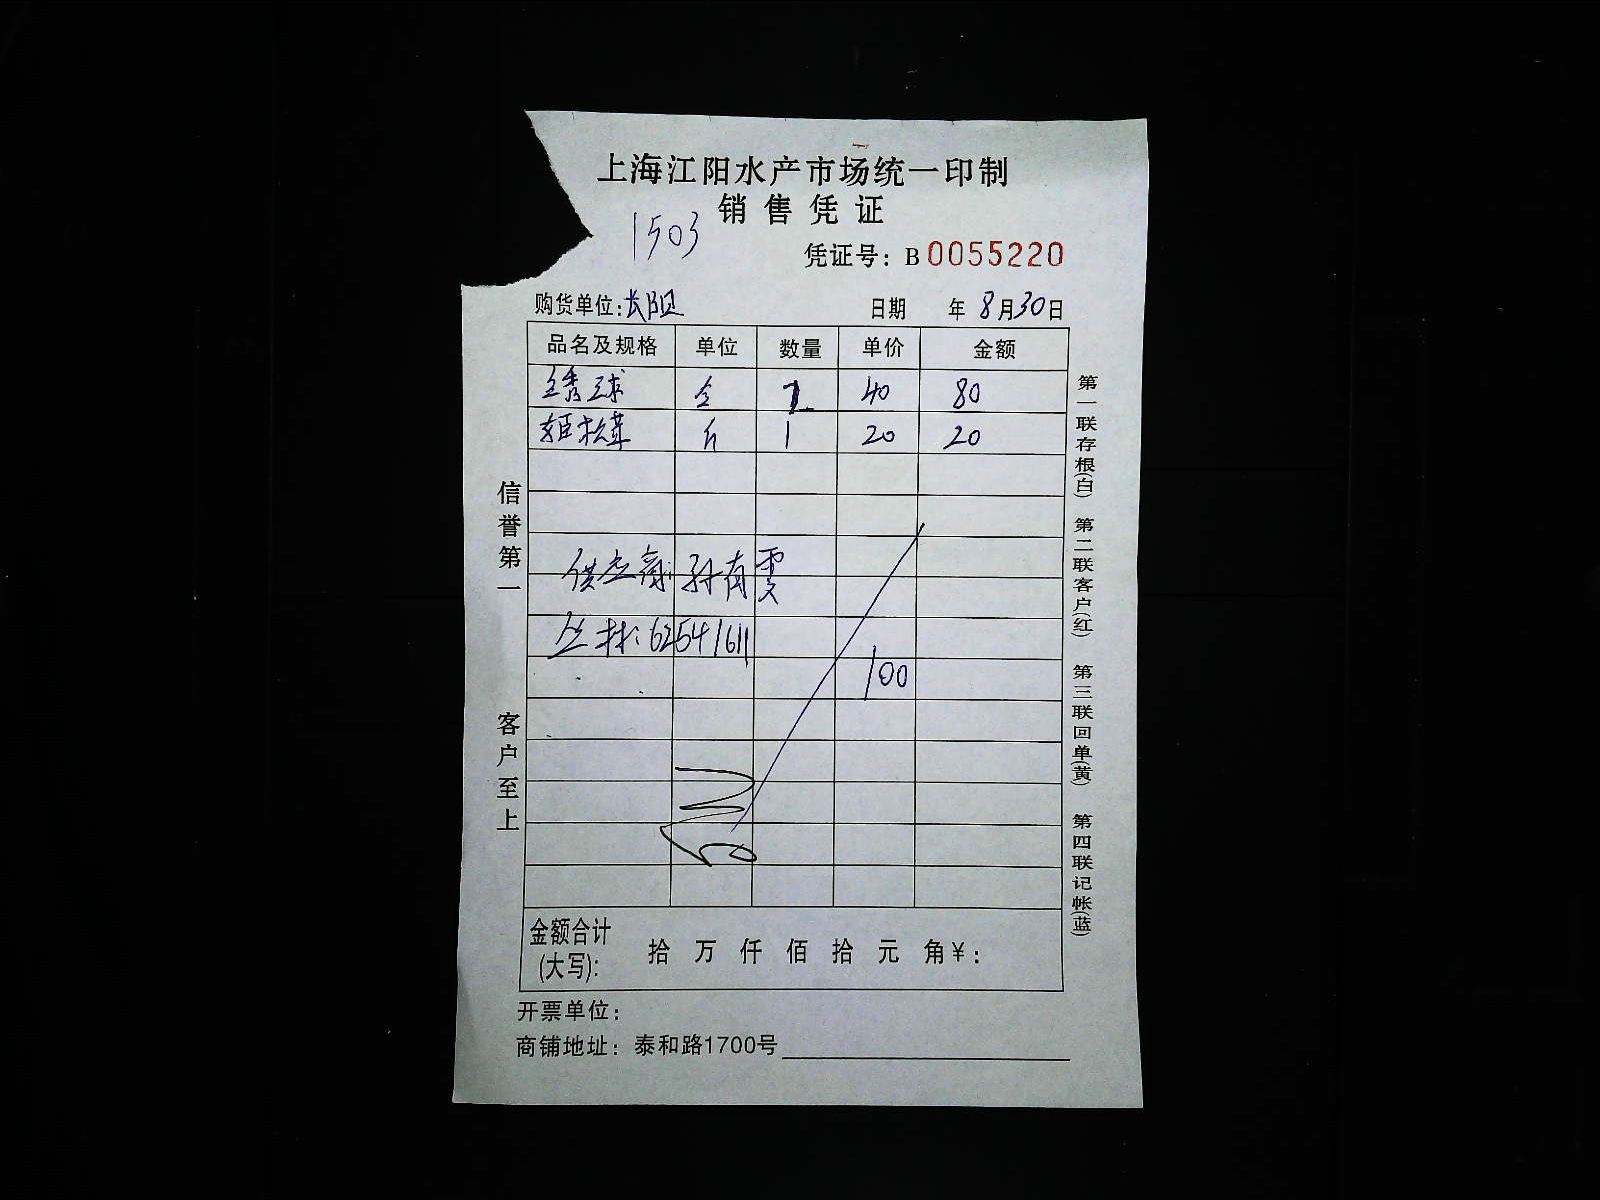 上海江阳水产市场统一印制
销售凭证
1503
凭证号：B 0055220
购货单位：长阳 日期 年 8月30日
品名及规格 单位 数量 单价 金额
绣球 2 40 80
姬松茸 斤 1 20 20
供应商 孙有雯
丛林：62541611
100
金额合计(大写)： 拾 万 仟 佰 拾 元 角 ¥：
开票单位：
商铺地址：泰和路1700号
信誉第一 客户至上
第一联存根(白) 第二联客户(红) 第三联回单(黄) 第四联记帐(蓝)